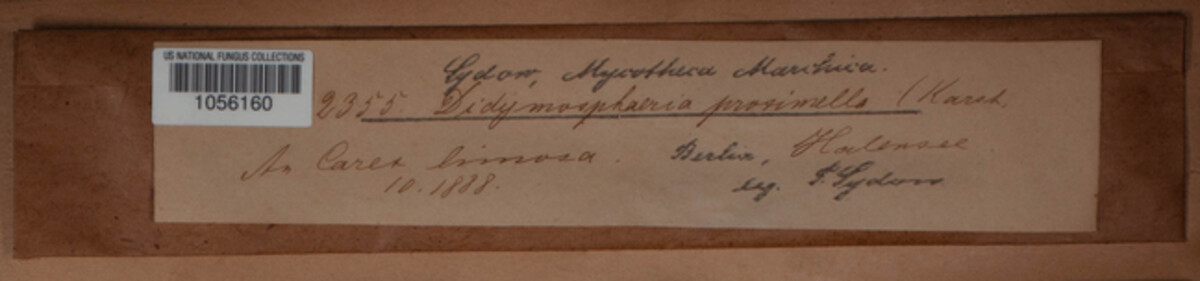 US NATIONAL FUNGUS COLLECTIONS
1056160
Sydow, Mycotheca Marchica.
2355. Didymosphaeria proximella (Karst.
An Carex limosa. Berlin, Halensee
10.1888. leg. P. Sydow